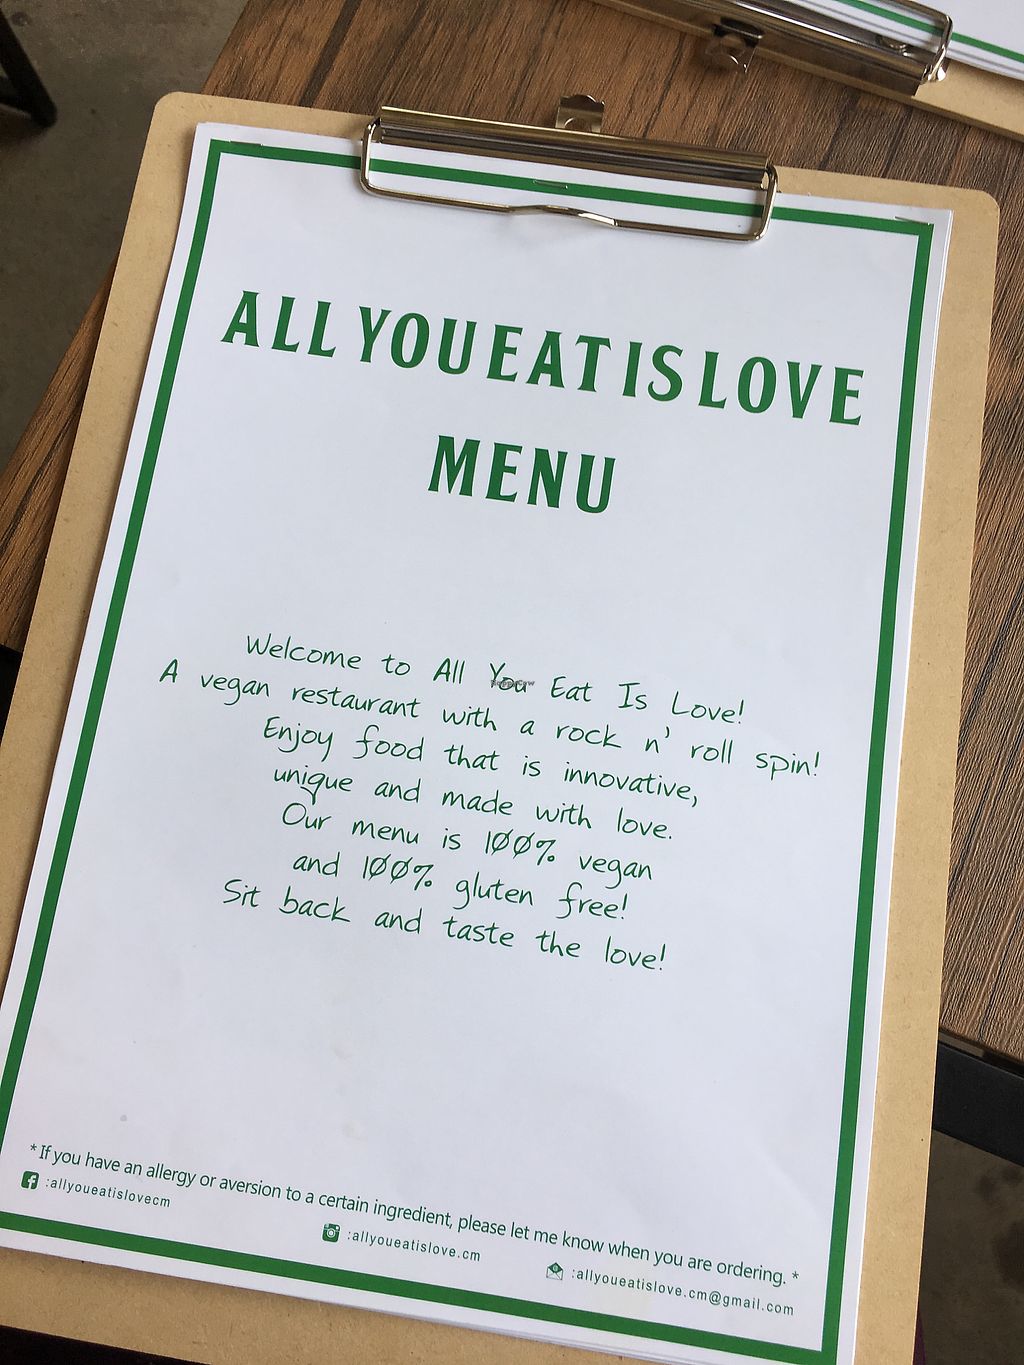 ALL YOU EAT IS LOVE
MENU
Welcome to All You Eat Is Love!
A vegan restaurant with a rock n' roll spin!
Enjoy food that is innovative,
unique and made with love.
Our menu is 100% vegan
and 100% gluten free!
Sit back and taste the love!
* If you have an allergy or aversion to a certain ingredient, please let me know when you are ordering. *
:allyoueatislovecm
:allyoueatislove.cm
:allyoueatislove.cm@gmail.com
HappyCow